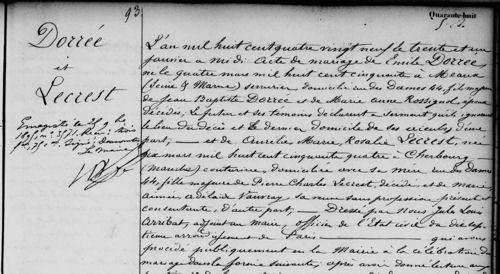 93
Quarante-huit
Dorrée
et
Lecrest
L'an mil huit cent quatre vingt neuf le trente et un
janvier à midi Acte de mariage de Emile Dorrée
né le quatre mars mil huit cent cinquante à Meaux
(Seine & Marne) serrurier domicilié rue des Dames 44, fils majeur
de Jean Baptiste Dorrée et de Marie Anne Rossignol, époux
décédés, Le futur et ses témoins déclarant à serment qu'ils ignorent
le lieu du décès et le dernier domicile de ses aïeuls d'une
part, — et de Aurélie Marie Rosalie Lecrest, née
mars mil huit cent cinquante quatre à Cherbourg
(Manche) couturière, domiciliée avec sa mère rue des Dames
44, fille majeure de Pierre Charles Lecrest, décédé, et de Marie
Aimée Adélaïde Vauvray, sa veuve sans profession présente et
consentante, d'autre part. — Dressé par Nous Jules Louis
Arribat, adjoint au Maire, officier de l'Etat civil du dix sep-
tième arrondissement de Paris — qui avons
procédé publiquement en la Mairie à la célébration du
mariage dans la forme suivante, après avoir donné lecture aux
Enregistré le
Le Maire